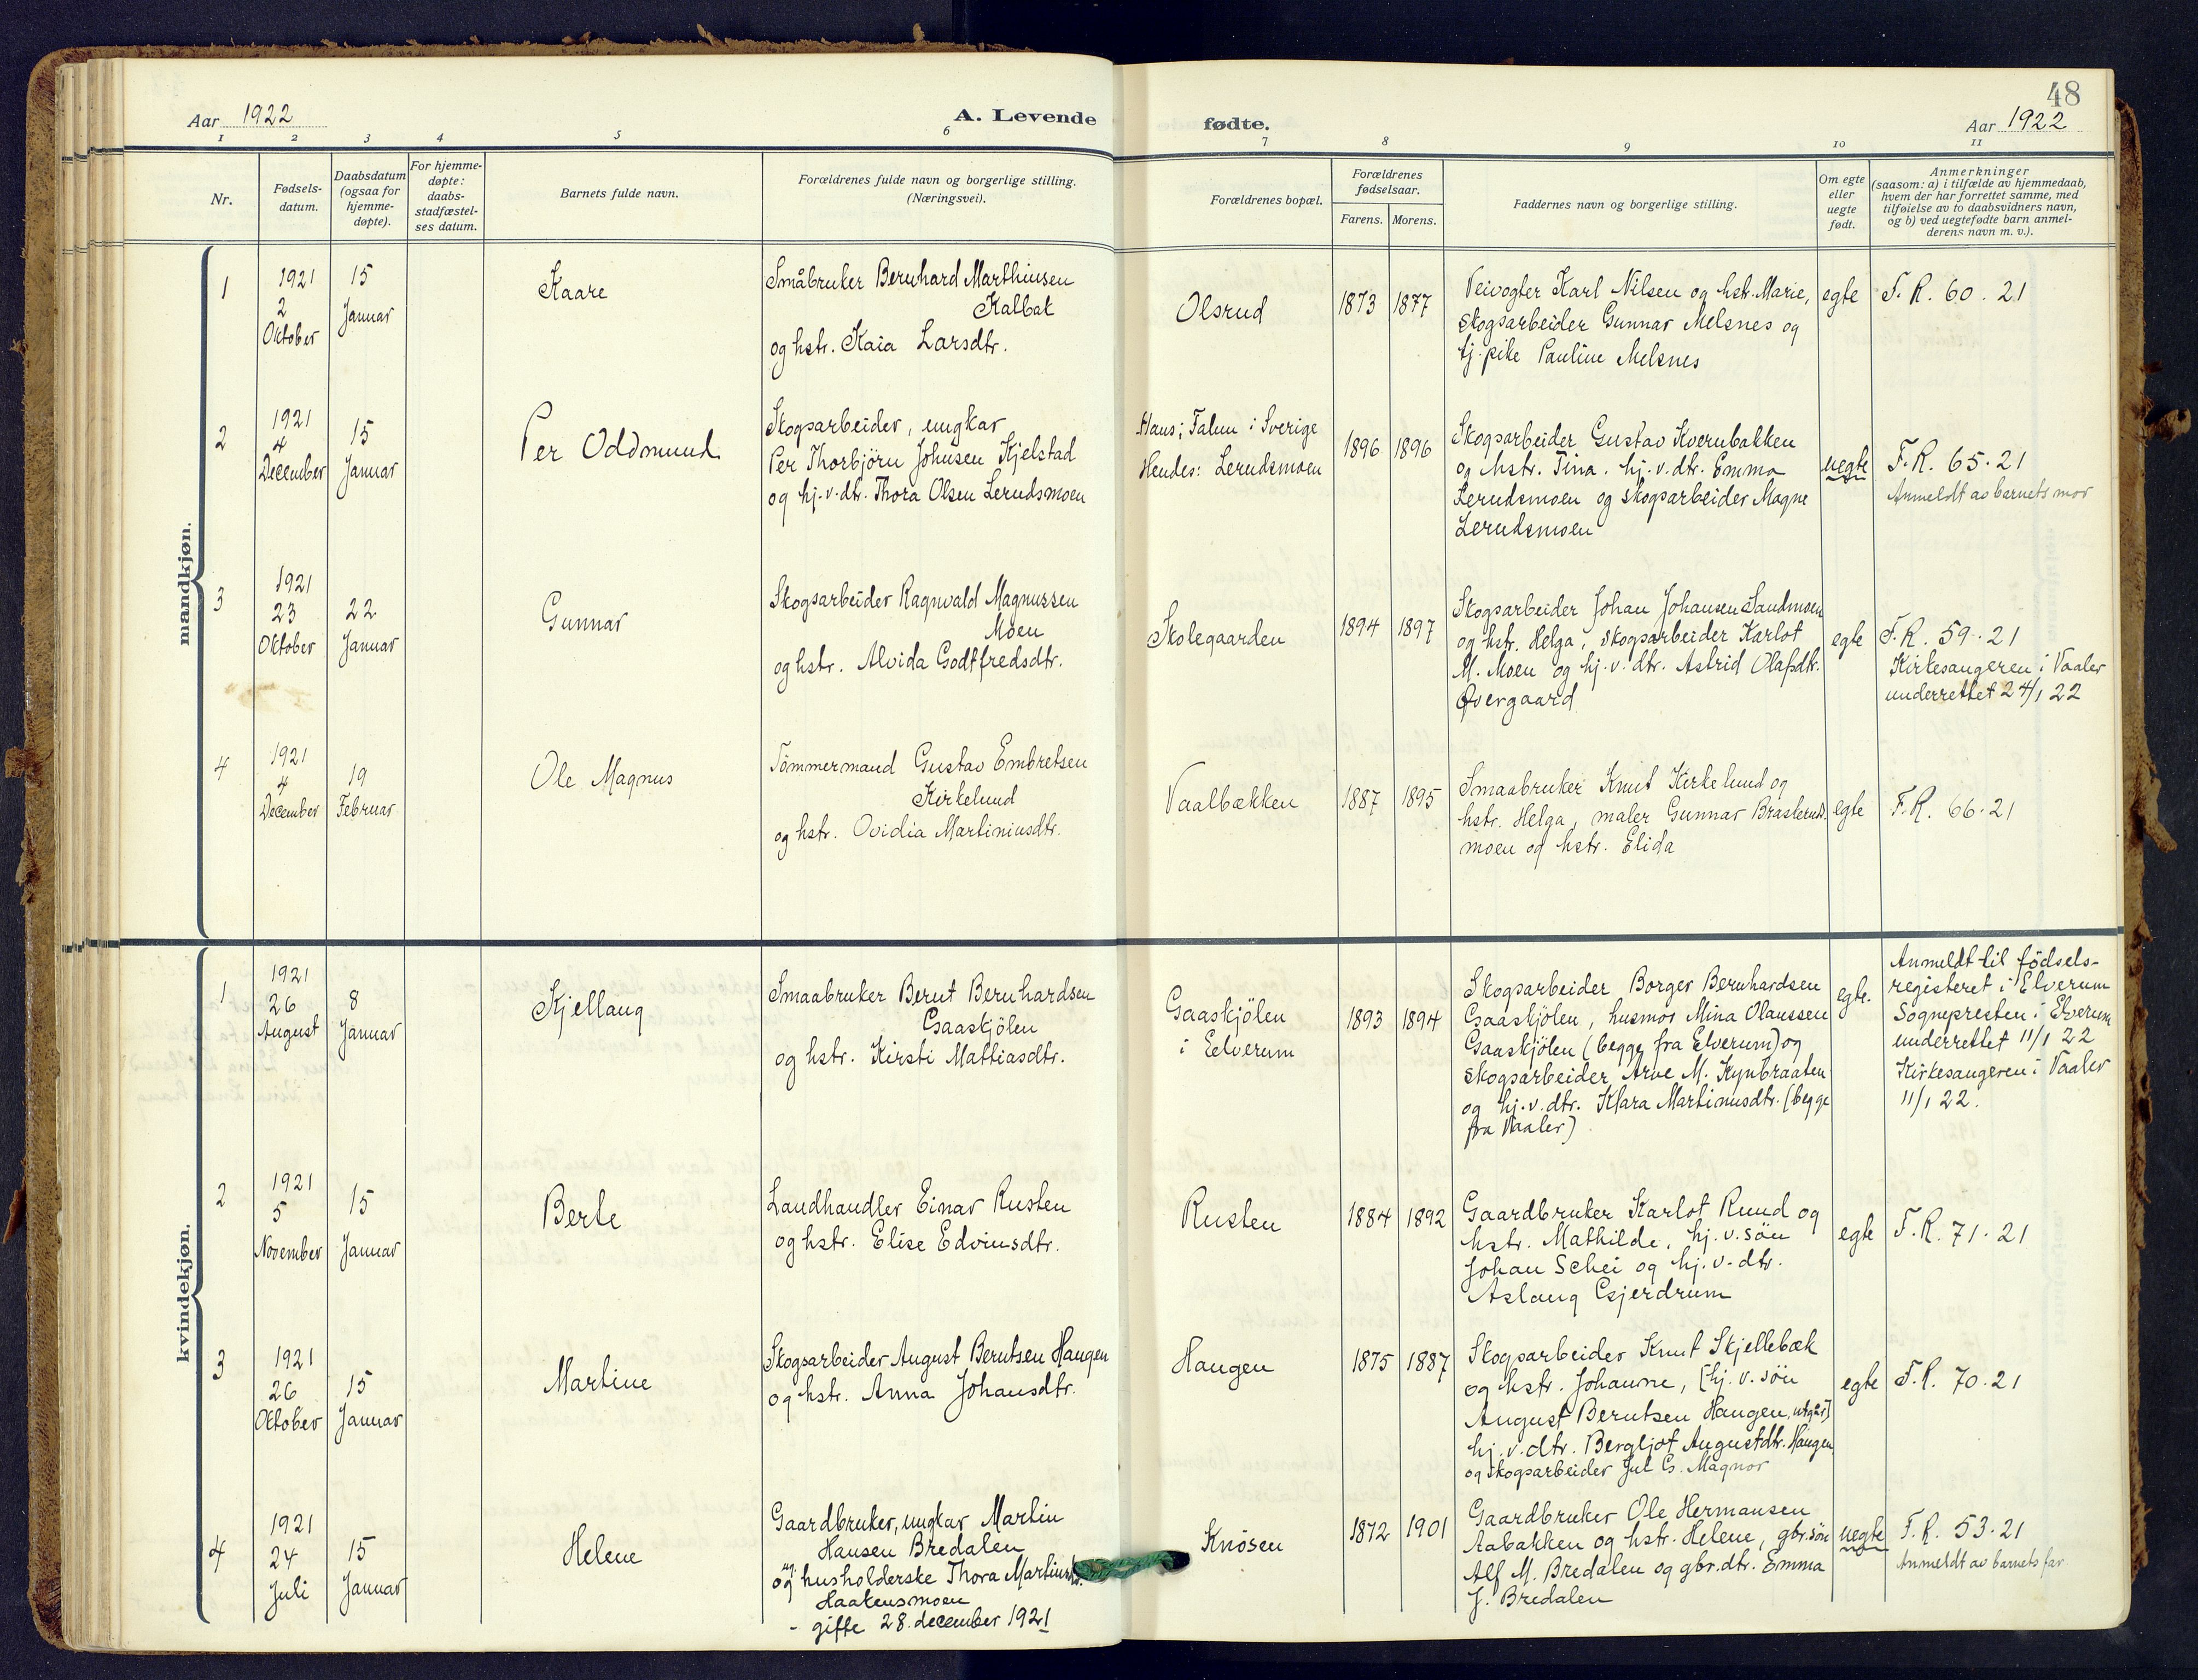 48
Aar 1922
A. Levende
fødte.
Aar 1922
1 2 3 4 5 6 7 8 9 10 11
Nr.
Fødsels-
datum.
Daabsdatum
(ogsaa for
hjemme-
døpte).
For hjemme-
døpte:
daabs-
stadfæstel-
ses datum.
Barnets fulde navn.
Forældrenes fulde navn og borgerlige stilling.
(Næringsvei).
Forældrenes bopæl.
Forældrenes
fødselsaar.
Farens.
Morens.
Faddernes navn og borgerlige stilling.
Om egte
eller
uegte
født.
Anmerkninger
(saasom: a) i tilfælde av hjemmedaab,
hvem der har forrettet samme, med
tilføielse av to daabsvidners navn,
og b) ved uegtefødte barn anmel-
derens navn m. v.).
mandkjøn.
1
1921
2
Oktober
15
Januar
Kaare
Småbruker Bernhard Marthinsen
Kalbak
og hstr. Kaia Larsdtr.
Olsrud
1873
1877
Veivogter Karl Nilsen og hstr. Marie,
skogsarbeider Gunnar Melsnes og
tj. pike Pauline Melsnes
egte
F. R. 60. 21
2
1921
4
December
15
Januar
Per Oddmund
Skogsarbeider, ungkar
Per Thorbjörn Johnsen Kjelstad
og hj. v. dtr. Thora Olsen Lerudsmoen
Hans: Falun i Sverige
Hendes: Lerudsmoen
1896
1896
Skogsarbeider Gustav Kvernbakken
og hstr. Tina. hj. v. dtr. Emma
Lerudsmoen og skogsarbeider Magne
Lerudsmoen
uegte
F. R. 65. 21
Anmeldt av barnets mor
3
1921
23
Oktober
22
Januar
Gunnar
Skogsarbeider Ragnvald Magnussen
Moen
og hstr. Alvida Godtfredsdtr.
Skolegaarden
1894
1897
Skogsarbeider Johan Johansen Sandmoen
og hstr. Helga, skogsarbeider Karlot
M. Moen og hj. v. dtr. Astrid Olafsdtr.
Øvergaard
egte
F. R. 59. 21
Kirkesangeren i Vaaler
underrettet 24/1 22
4
1921
4
December
19
Februar
Ole Magnus
Tömmermand Gustav Embretsen
Kirkelund
og hstr. Ovidia Martiniusdtr.
Vaalbækken
1887
1895
Smaabruker Knut Kirkelund og
hstr. Helga, maler Gunnar Brasterud-
moen og hstr. Elida
egte
F. R. 66. 21
kvindekjøn.
1
1921
26
August
8
Januar
Kjellaug
Smaabruker Bernt Bernhardsen
Gaaskjölen
og hstr. Kirsti Mattiasdtr.
Gaaskjölen
i Eelverum
1893
1894
Skogsarbeider Borger Bernhardsen
Gaaskjölen, husmor Mina Olaussen
Gaaskjölen (begge fra Elverum) og
skogsarbeider Arve M. Kynbraaten
og hj. v. dtr. Klara Martinusdtr. (begge
fra Vaaler)
egte.
Anmeldt til födsels-
registeret i Elverum
Sognepresten i Elverum
underrettet 11/1 22
Kirkesangeren i Vaaler
11/1 22.
2
1921
5
November
15
Januar
Berte
Landhandler Einar Rusten
og hstr. Elise Edvinsdtr.
Rusten
1884
1892
Gaardbruker Karlot Rund og
hstr. Mathilde, hj. v. sön
Johan Schei og hj. v. dtr.
Aslaug Gjerdrum
egte
F. R. 71. 21
3
1921
26
Oktober
15
Januar
Martine
Skogsarbeider August Berntsen Haugen
og hstr. Anna Johansdtr.
Haugen
1875
1887
Skogsarbeider Knut Skjellebæk
og hstr. Johanne, [hj. v. sön
August Berntsen Haugen, utgår]
hj. v. dtr. Bergljot Augustdtr. Haugen
og skogsarbeider Jul G. Magnor
egte
F. R. 70. 21
4
1921
24
Juli
15
Januar
Helene
Gaardbruker, ungkar Martin
Hansen Bredalen
og husholderske Thora
Haakensmoen
- gifte 28. december 1921
Knösen
1872
1901
Gaardbruker Ole Hermansen
Aabakken og hstr. Helene, gbr. sön
Alf M. Bredalen og gbr. dtr. Emma
J. Bredalen
uegte
F. R. 53. 21
Anmeldt av barnets far